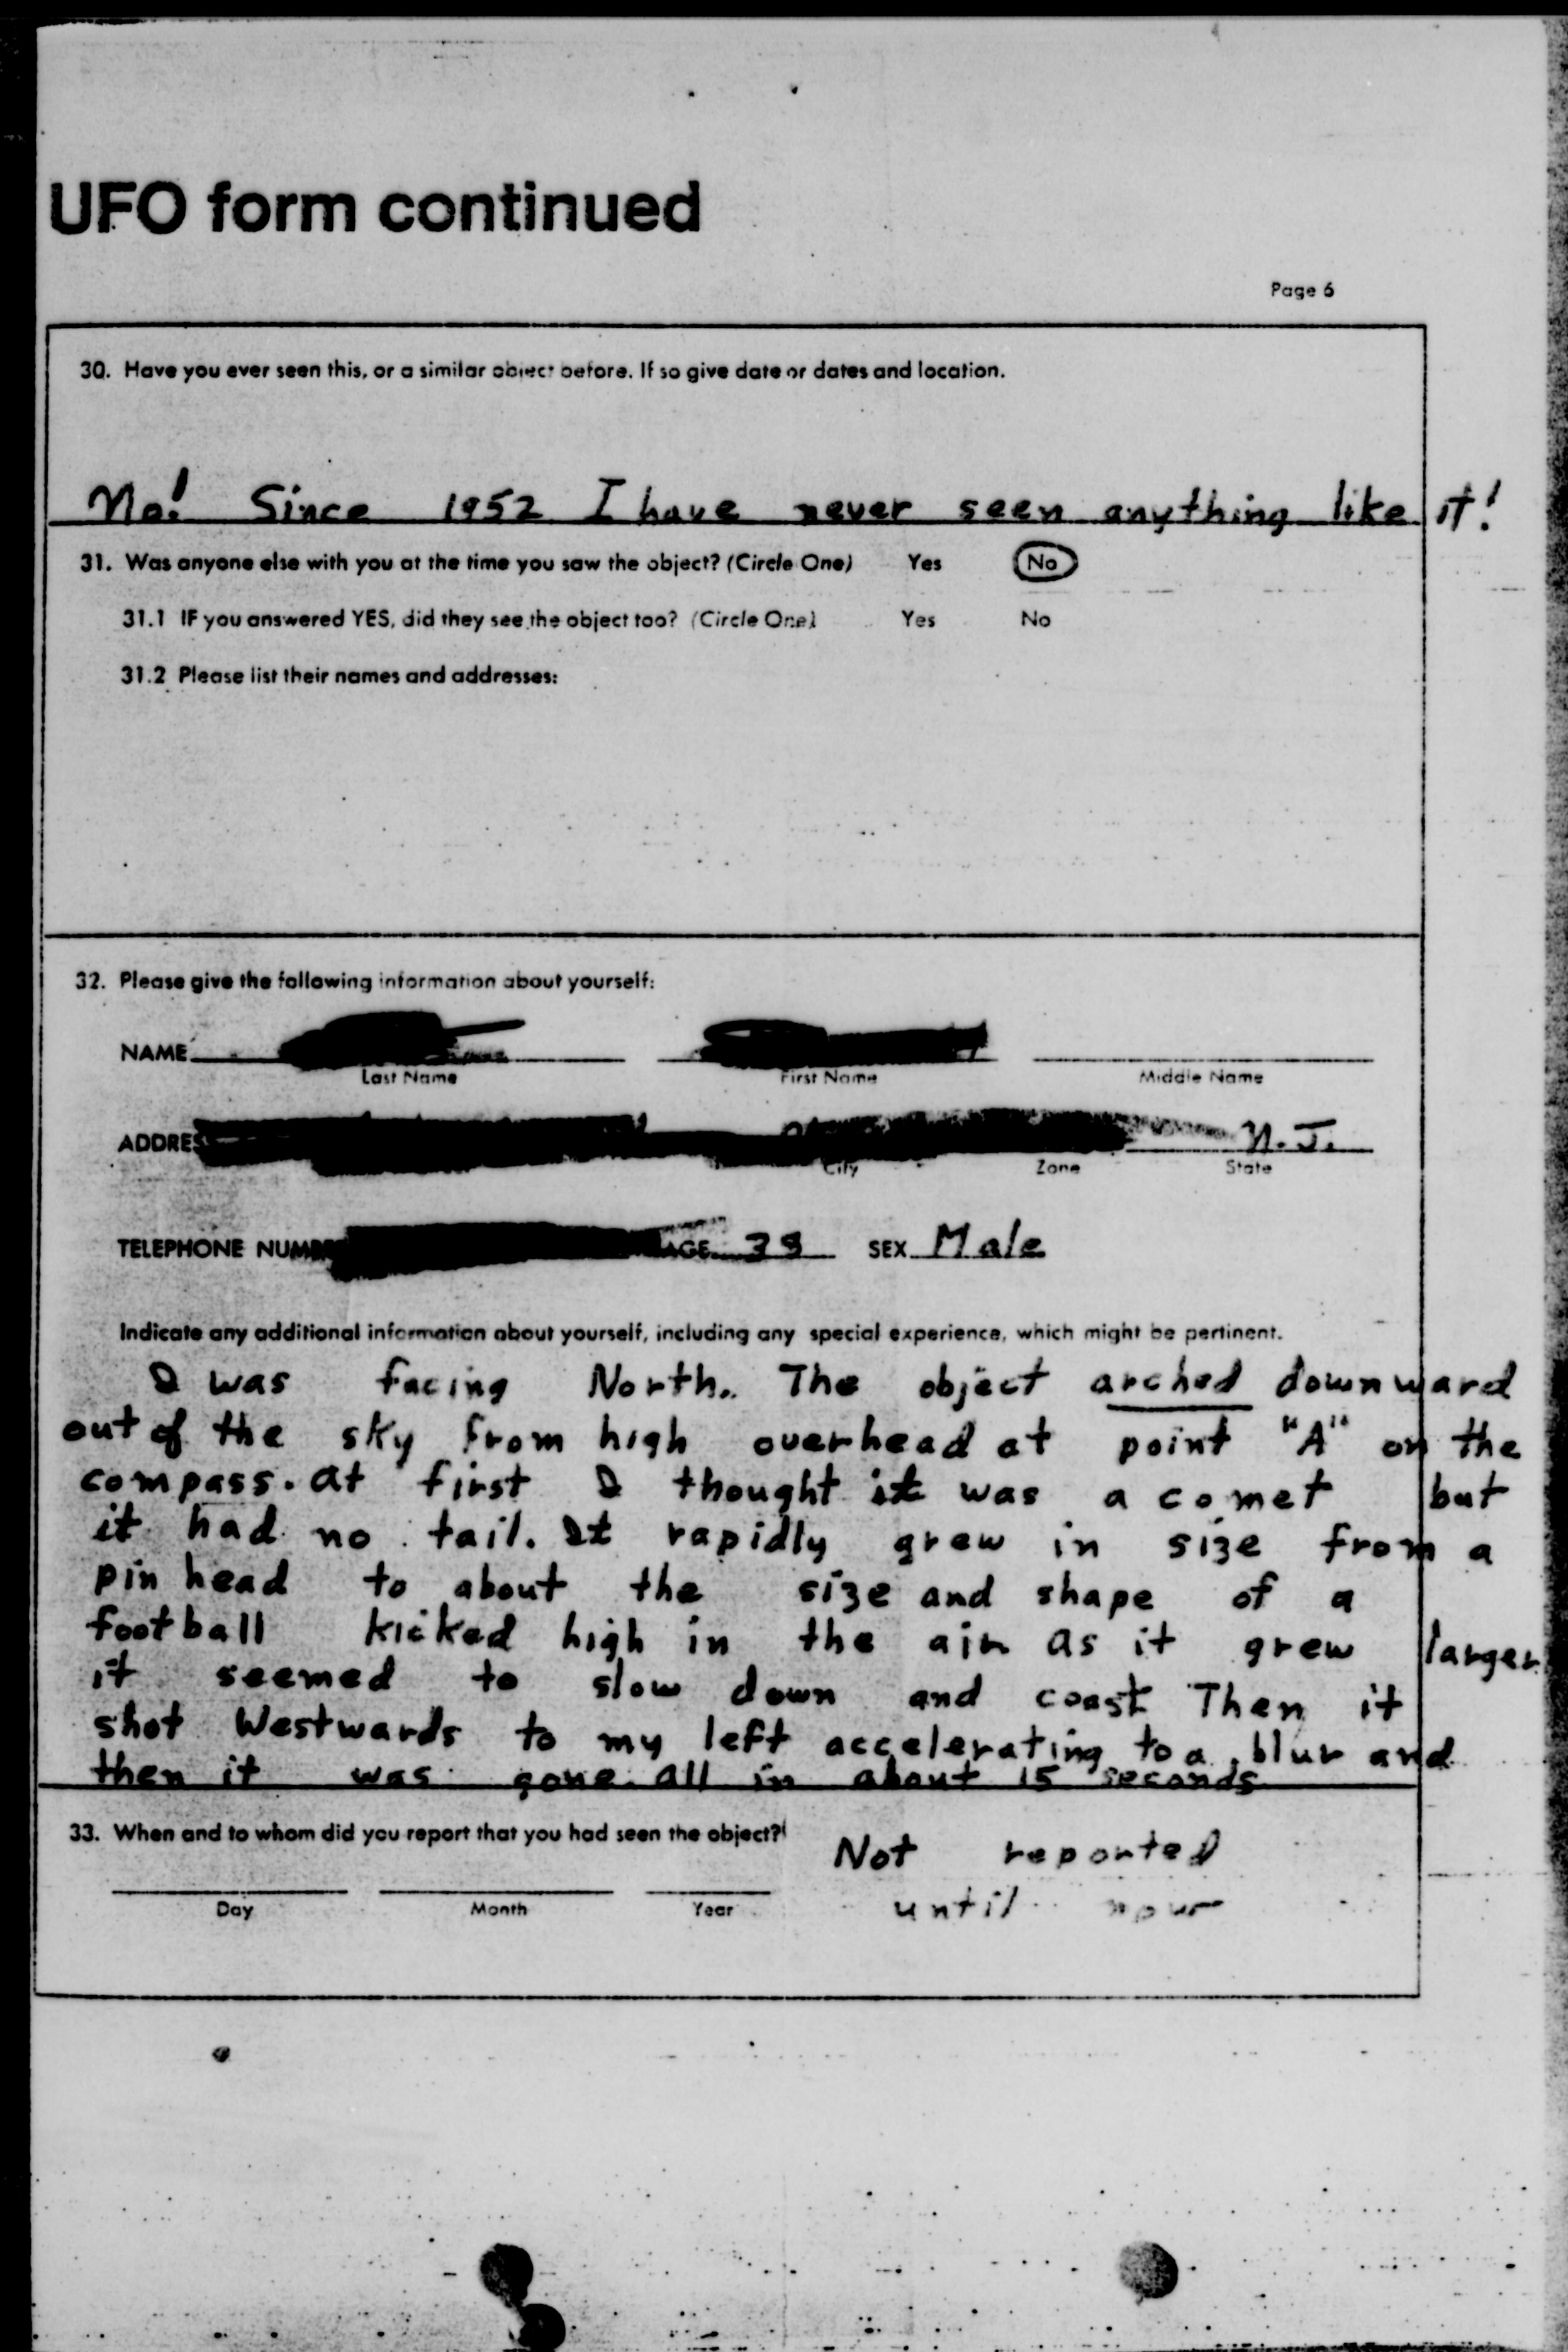 UFO form continued
Page 6
30. Have you ever seen this, or a similar object before. If so give date or dates and location.
No! Since 1952 I have never seen anything like it!
31. Was anyone else with you at the time you saw the object? (Circle One) Yes No
31.1 IF you answered YES, did they see the object too? (Circle One) Yes No
31.2 Please list their names and addresses:
32. Please give the following information about yourself:
NAME
Last Name First Name Middle Name
ADDRES N.J.
City Zone State
TELEPHONE NUMB AGE SEX Male
Indicate any additional information about yourself, including any special experience, which might be pertinent.
I was facing North. The object arched downward
out of the sky from high overhead at point "A" on the
compass. at first I thought it was a comet but
it had no tail. It rapidly grew in size from a
pin head to about the size and shape of a
football kicked high in the air as it grew larger
it seemed to slow down and coast Then it
shot Westwards to my left accelerating to a blur and
then it was gone. all in about 15 seconds
33. When and to whom did you report that you had seen the object?
Not reported
until now
Day Month Year